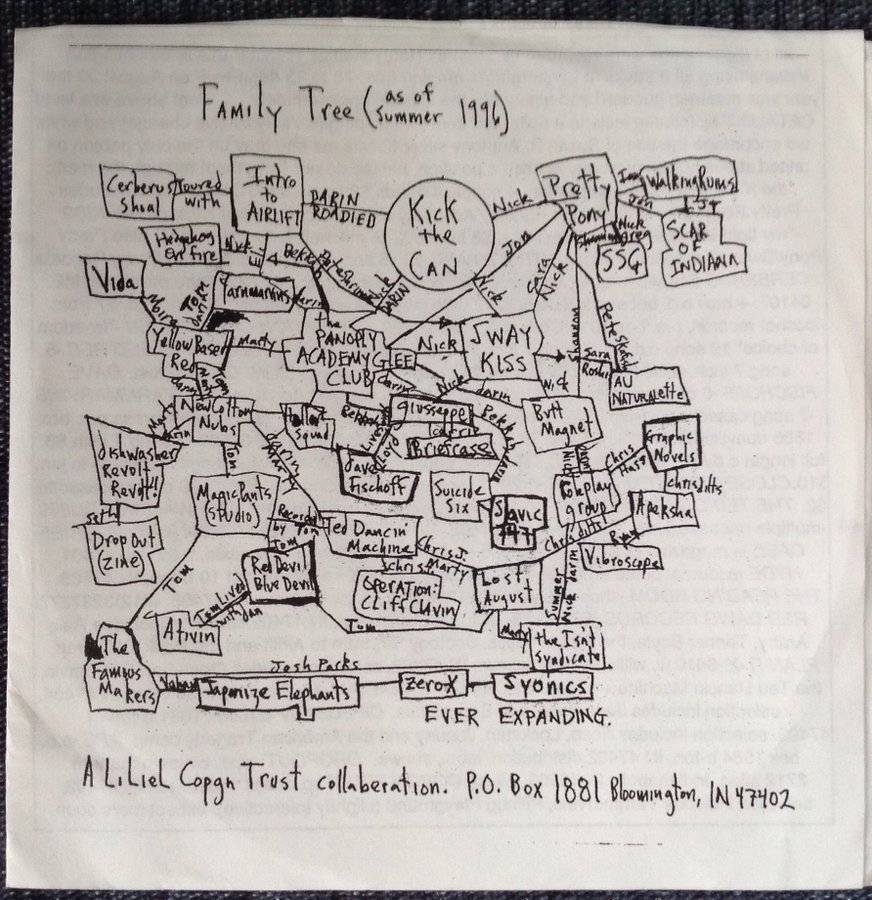 FAMILY TREE (as of Summer 1996)
Cerberus Shoal
Toured with
Intro to AIRLIFT
DARIN ROADIED
KICK the CAN
Nick
Pretty Pony
Jon
WalkingRuins
SCAR OF INDIANA
Nick
Greg
SSG
Hedgehog On fire
Nick
Pete
Darin
Nick
DARIN
Jon
Nick
Cara
Nick
Shannon
Pete
Vida
Moira
Tom
darin
Tarnmarvins
Darin
Yellow Based Red
Matty
the PANOPLY ACADEMY GLEE CLUB
Nick
SWAY KISS
Sara
AU NATURALETTE
Tom
New Cotton Nubs
Squad
darin
Nick
darin
Nick
Giusseppe
Briefcase
Butt Magnet
Dishwasher Revolt Revolt!!
Tom
Dave Fischoff
Graphic Novels
Chris
Seth
Magic Pants (Studio)
Suicide Six
Slavic 747
Roleplay group
chris ditts
Apeksha
Drop Out (zine)
Recorded by Tom
Ted Dancin' Machine
Chris ditts
Ryan
Viboroscope
Tom
Tom
Red Devil Blue Devil
Chris J.
Marty
Lost August
OPERATION: CLIFF CLAVIN
Tom Lives with Dan
Ativin
Tom
Summer
Nick
darin
the Isnt Syndicate
The Famous Makers
Josh Packs
Japonize Elephants
ZeroX
Syonics
EVER EXPANDING.
A LiLieL Copgn Trust collaberation. P.O. Box 1881 Bloomington, IN 47402